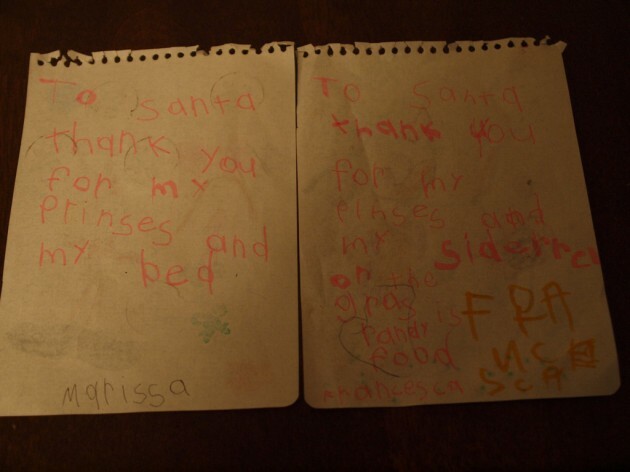 To santa
thank you
for my
prinses and
my bed
Marissa
To santa
thank you
for my
pinses and
my siderrel
on the
gras
food
Francesca
FRA
NC
SCA